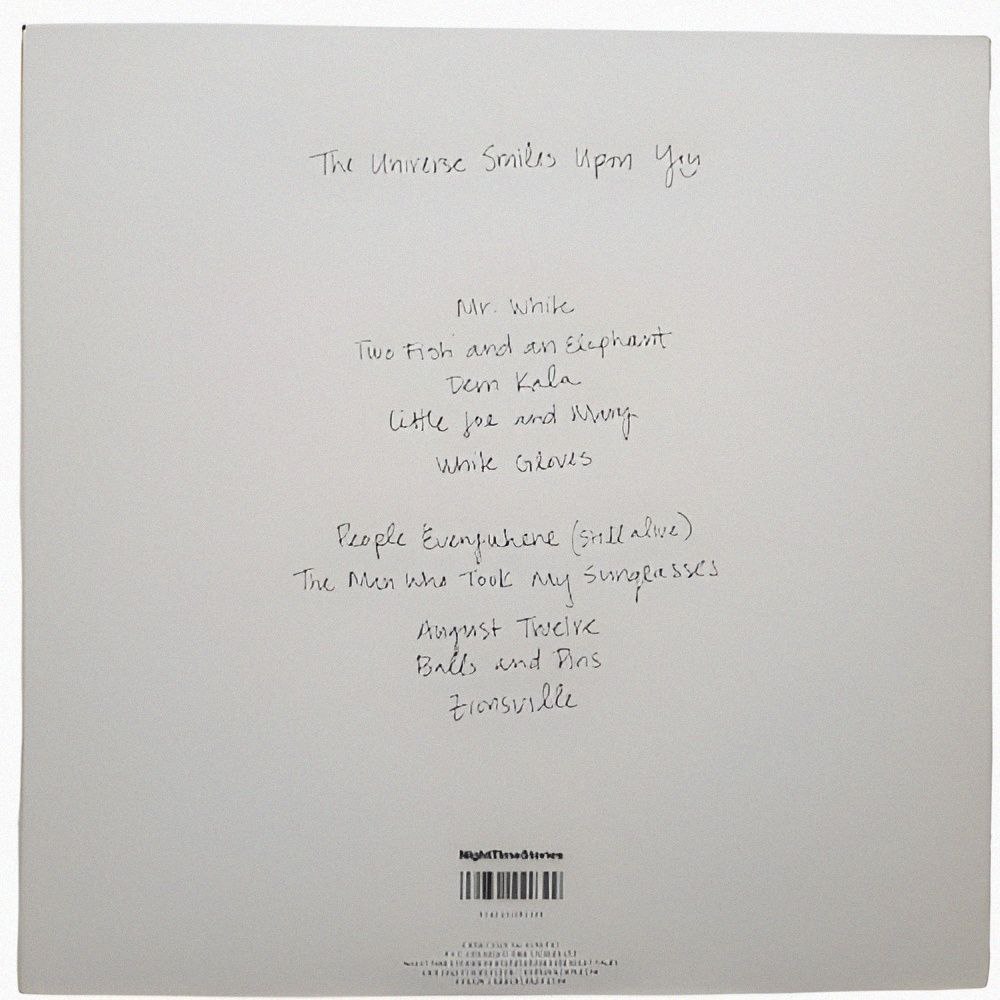 The Universe Smiles Upon You
Mr. White
Two Fish and an Elephant
Dern Kala
Little Joe and Mary
White Gloves
People Everywhere (Still alive)
The Man Who Took My Sunglasses
August Twelve
Balls and Pins
Zionsville
NightTimeStories